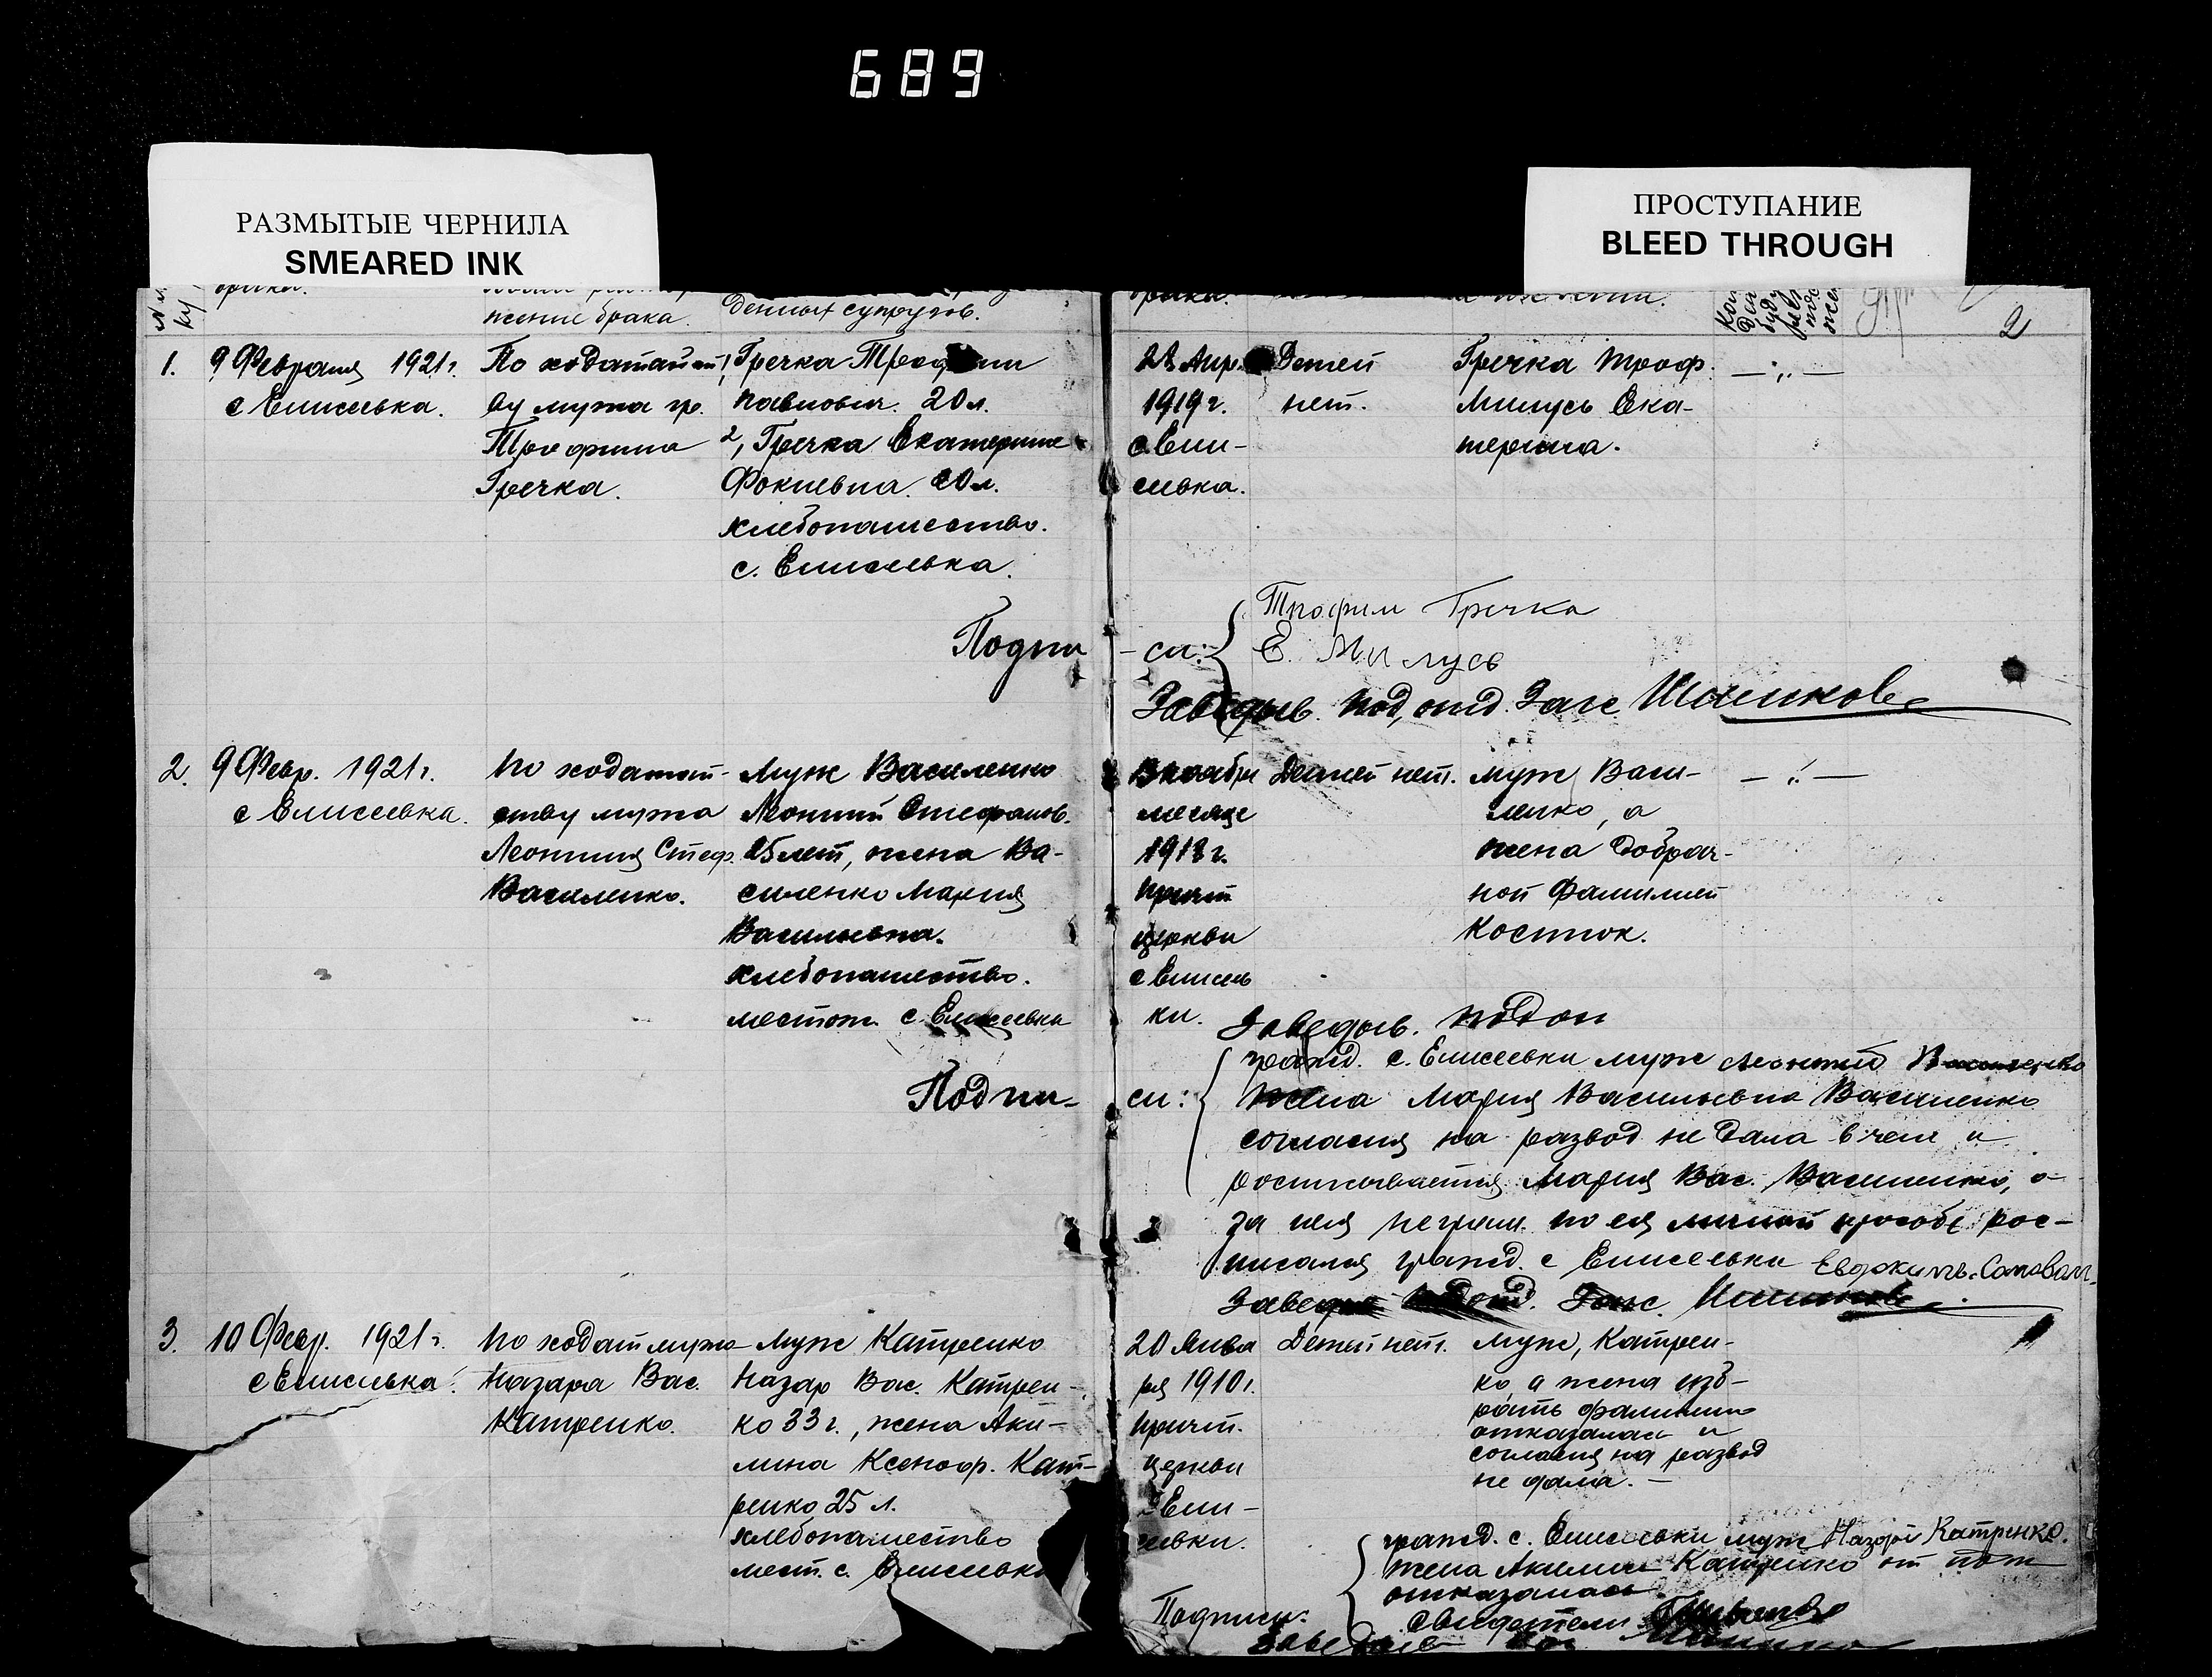 689
РАЗМЫТЫЕ ЧЕРНИЛА
SMEARED INK
ПРОСТУПАНИЕ
BLEED THROUGH
брака.
жение брака.
денных супругов.
брака.
2
1.
9 Февраля 1921 г.
с Елисеевка.
По ходатайст
ву мужа гр.
Трофима
Гречка.
1, Гречка Трофим
Павлович. 20 л.
2, Гречка Екатерина
Фокиевна. 20 л.
хлебопашество.
с. Елисеевка.
28 Апр.
1919 г.
с Ели-
сеевка.
Детей
нет.
Гречка Троф.
Милусь Ека-
терина.
Подпи
- си:
Трофим Гречка
Е. Милусь
Заведыв. под, отд. Загс
2.
9 Февр. 1921 г.
с Елисеевка.
По ходатай-
ству мужа
Леонтия Стеф.
Василенко.
Муж Василенко
Леонтий Стефанов.
25 лет, жена Ва-
силенко Мария
Васильевна.
хлебопашество.
местож. с Елисеевка
месяце
1918 г.
причт
церкви
с Елисеев
ки.
Детей нет.
муж Васи-
ленко, а
жена добрач-
ной Фамилией
Костюк.
Заведыв. подот
Подпи-
си:
гражд. с. Елисеевки муж Леонтий Василенко
жена Мария Васильевна Василенко
согласия на развод не дала в чем и
росписывается Мария Вас. Василенко, а
за нея неграм. по ея личной прозьбе рос-
писался гражд. с Елисеевки
Заведыв. подотд. Загс.
3.
10 Февр. 1921 г.
с Елисеевка.
По ходат мужа
Назара Вас.
Катренко.
Муж Катренко
Назар Вас. Катрен-
ко 33 г., жена Аки-
лина Ксеноф. Кат-
ренко 25 л.
хлебопашество
мест. с. Елисеевка
20 Янва
ря 1910 г.
причт.
церкви
с Ели-
сеевки.
Детей нет.
муж, Катрен-
ко, а жена изб-
рать фамилию
отказалась и
согласия на развод
не дала. -
Подписи:
гражд. с. Елисеевки муж Назар Катренко.
жена Акилина Катренко от
отказалась
свидетели